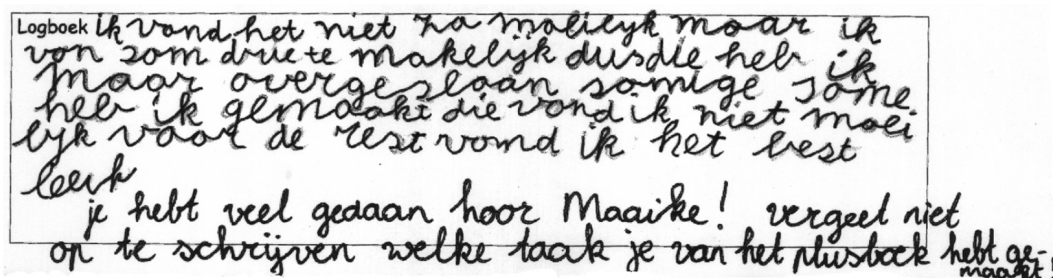 Logboek ik vond het niet zo moeilyk maar ik
von som drie te makelijk dusdie heb ik
maar overgeslaan somige some
heb ik gemaakt die vond ik niet moei
lyk voor de rest vond ik het best
leuk
je hebt veel gedaan hoor Maaike! vergeet niet
op te schrijven welke taak je van het plusboek hebt ge-
maakt!